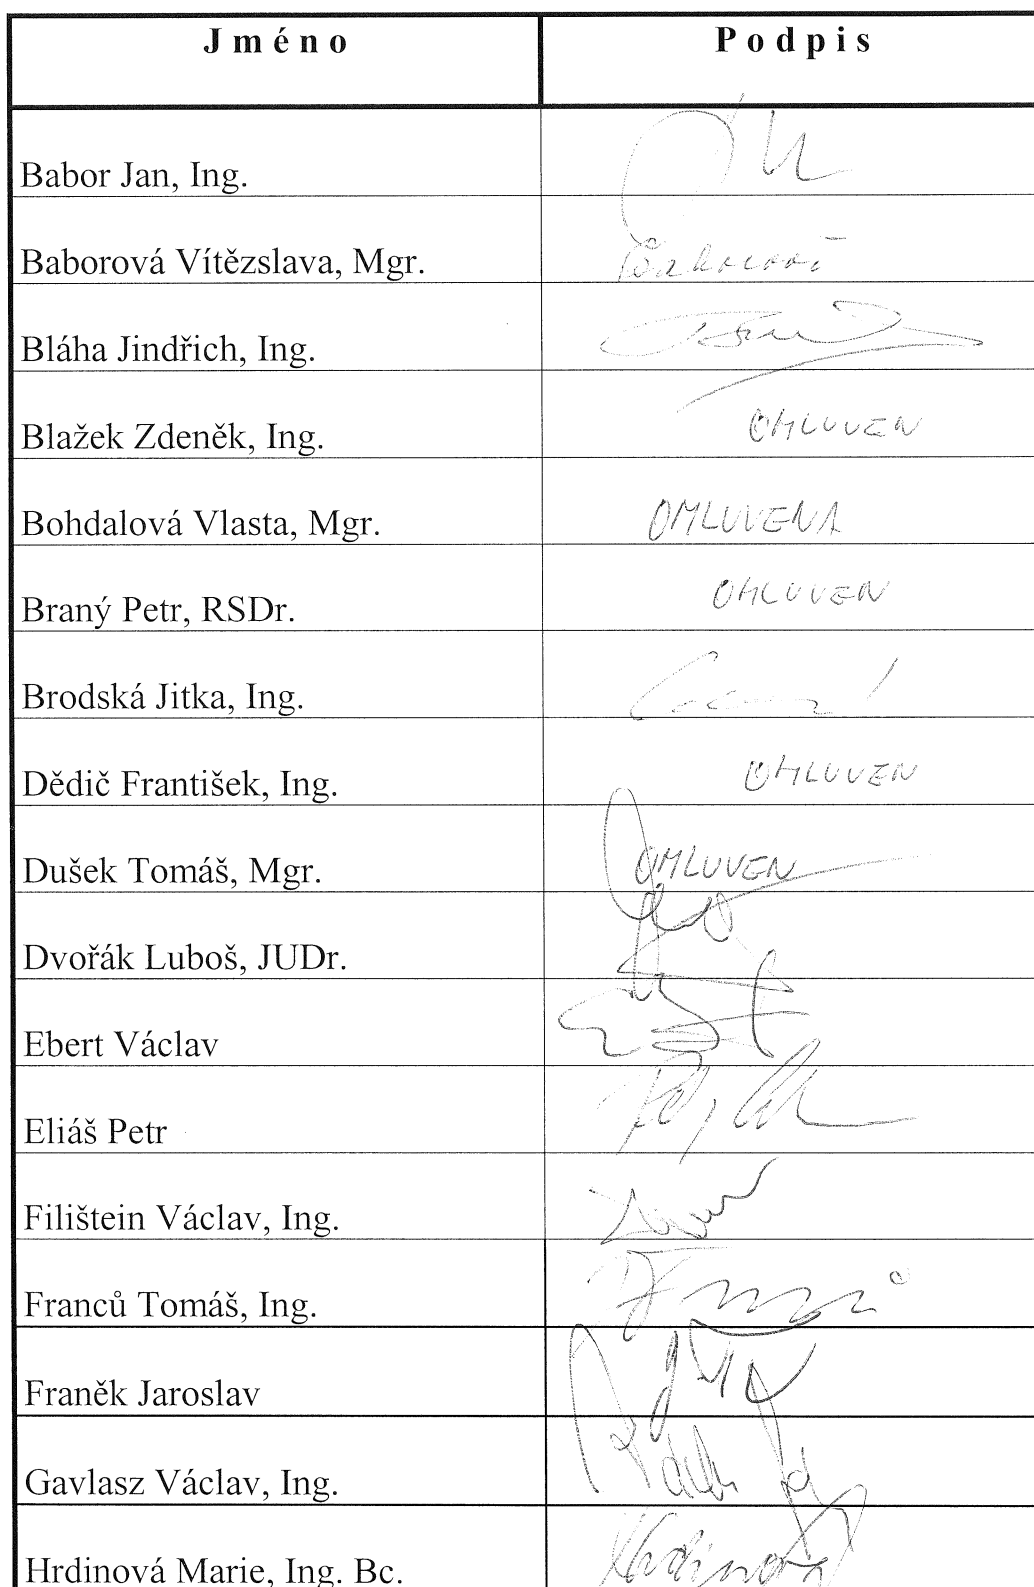 Jméno Podpis
Babor Jan, Ing.
Baborová Vítězslava, Mgr.
Bláha Jindřich, Ing.
Blažek Zdeněk, Ing. OMLUVEN
Bohdalová Vlasta, Mgr. OMLUVENA
Braný Petr, RSDr. OMLUVEN
Brodská Jitka, Ing.
Dědič František, Ing. OMLUVEN
Dušek Tomáš, Mgr. OMLUVEN
Dvořák Luboš, JUDr.
Ebert Václav
Eliáš Petr
Filištein Václav, Ing.
Franců Tomáš, Ing.
Franěk Jaroslav
Gavlasz Václav, Ing.
Hrdinová Marie, Ing. Bc. Hrdinová